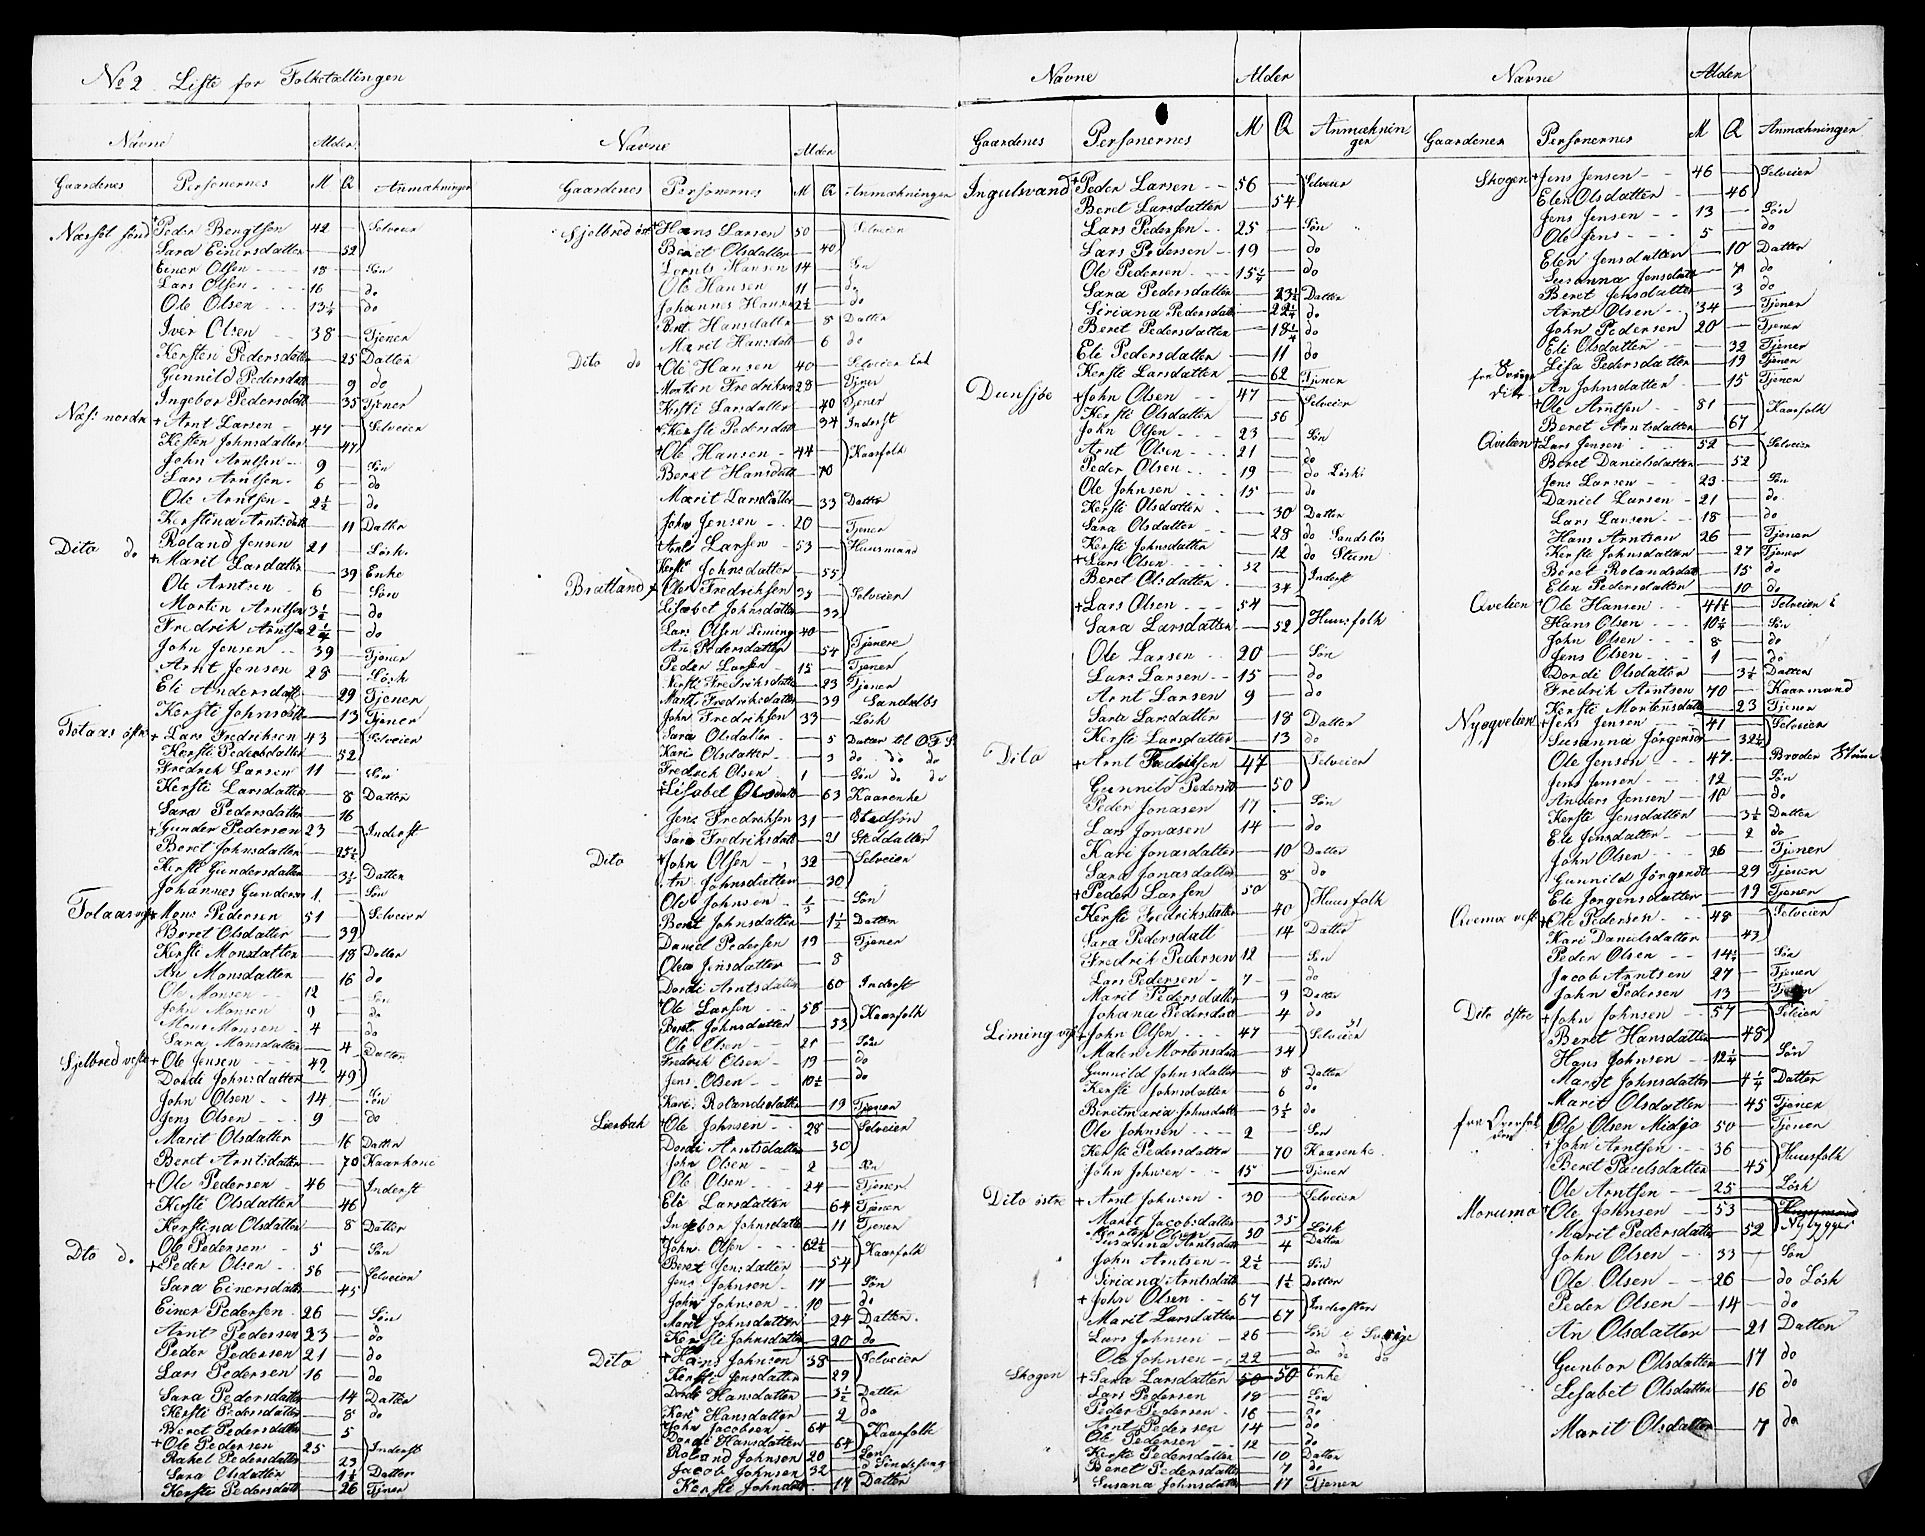 No 2 Liste for Folketællingen
Navne Alder
Gaardenes Personernes M Q Anmækninger
Næssel sönd + Peder Bengtsen 42 — Selveier
Sara Einersdatter — 52
Einer Olsen 18 — Sön
Lars Olsen 16 — do
Ole Olsen 13¼ — do
Iver Olsen 38 — Tjener
Kersten Pedersdatter — 25 Datter
Gunnild Pedersdatt — 9 do
Ingebor Pedersdatt — 35 Tjener
Næs: nordre + Arnt Larsen 47 — Selveier
Kersten Johnsdatter — 47
John Arntsen 9 — Sön
Lars Arntsen 6 — do
Ole Arntsen 2½ — do
Kerstina Arntsdatt — 11 Datter
Dito do Roland Jensen 21 — Lösk
+ Marit Larsdatter — 39 Enke
Ole Arntsen 6 — Sön
Morten Arntsen 3½ — do
Fredrik Arntsen 2¼ — do
John Jensen 39 — Tjener
Arnt Jensen 28 — Lösk
Eli Andersdatt — 29 Tjener
Kersti Johnsdatt — 13 Tjener
Tolaas östre + Lars Fredriksen 43 — Selveier
Kersti Pedersdatter — 52
Fredrik Larsen 11 — Sön
Kersti Larsdatter — 8 Datter
Sara Pedersdatter — 16
+ Gunder Pedersen 23 — Inderst
Beret Johnsdatter — 25½
Kersti Gundersdatter — 3½ Datter
Johannes Gundersen 1 — Sön
Tolaas vest + Mons Pedersen 51 — Selveier
Beret Olsdatter — 39
Kersti Monsdatter — 18 Datter
An Monsdatter — 16 do
Ole Monsen 12 — Sön
John Monsen 9 — do
Mons Monsen 4 — do
Sara Monsdatter — 4 Datter
Sjelbred vestre + Ole Jensen 49
Dordi Johnsdatter — 49
John Olsen 14 — Sön
Jens Olsen 9 — do
Marit Olsdatter — 16 Datter
Beret Arntsdatter — 70 Kaarkone
+ Ole Pedersen 46 — Inderst
Kersti Olsdatter — 46
Kerstina Olsdatter — 8 Datter
Ole Pedersen 5 — Sön
Dto do + Peder Olsen 56 — Selveier
Sara Einersdatt — 45
Einer Pedersen 26 — Sön
Arnt Pedersen 23 — do
Peder Pedersen 21 — do
Lars Pedersen 16 — do
Sara Pedersdatter — 14 Datter
Kersti Pedersdatter — 8 do
Beret Pedersdatter — 5
+ Ole Pedersen 25 — Inderst
Rakel Pedersdatter — 23
Sara Olsdatter — 1½ Datter
Kersti Pedersdatt — 26 Tjener
Navne Alder
Gaardenes Personernes M Q Anmækninger
Sjelbred öst + Hans Larsen 50 — Selveier
Beret Olsdatter — 40
Lornts Hansen 14 — Sön
Ole Hansen 11 — do
Johannes Hansen 2½ — do
Beret Hansdatter — 8 Datter
Marit Hansdatt — 6 do
Dito do + Ole Hansen 40 — Selveier Enk
Morten Fredriksen 28 — Tjener
Kersti Larsdatter — 40 Tjener
+ Kersti Pedersdatt — 34 Inderst
+ Ole Hansen 44 — Kaarfolk
Beret Hansdatt — 70
Marit Larsdatter — 33 Datter
John Jensen 20 — Tjener
+ Arnt Larsen 53 — Huusmand
Kersti Johnsdatter — 55
Brætland + Olen Fredriksen 35 — Selveier
Lisabet Johnsdatter — 33
Lars Olsen Liming 40 —
An Pedersdatter — 54 Tjenere
Peder Larsen 15 — Tjener
Kersti Fredriksdatt — 23 Tjener
Marit Fredriksdatter — 39 Sandslös
John Fredriksen 33 — Lösk
Sara Olsdatter — 5 Datter til O F S
Kari Olsdatter — 3 do do do
Fredrik Olsen 1 — Sön do do
+ Lisabet Olsdatt — 63 Kaarenke
Jens Fredriksen 31 — Stedsön
Sara Fredriksdatt — 21 Steddatter
Dito + John Olsen 32 — Selveier
An Johnsdatter — 30
Ole Johnsen ⅕ — Sön
Beret Johnsdatter — 1½ Datter
Daniel Pedersen 19 — Tjener
Olea Jensdatter — 8
Dordi Arntsdatter — 60 Inderst
+ Ole Larsen 58 — Kaarfolk
Beret Johnsdatter — 53
Ole Olsen 21 — Sön
Fredrik Olsen 19 — do
Jens Olsen 10½ — do
Kari Rolandsdatter — 19 Tjener
Lierbak + Ole Johnsen 28 — Selveier
Dordi Arntsdatter — 30
John Olsen 2 — Sön
Ole Olsen 24 — Tjener
Eli Larsdatter — 64 Tjener
Ingebor Johnsdatter — 11 Tjener
+ John Olsen 62½ — Kaarfolk
Beret Jensdatter — 54
Jens Johnsen 17 — Sön
John Johnsen 10 — do
Marit Johnsdatter — 24 Datter
Kersti Johnsdatter — 20 do
Dito + Hans Johnsen 38 — Selveier
Kersti Jensdatter — 29
Dordi Hansdatter — 3½ Datter
Kari Hansdatter — 2 do
+ John Jacobsen 64 — Kaarfolk
Dordi Hansdatter — 64
Roland Johnsen 20 — Sön
Jacob Johnsen 32
Kersti Johnsdatt — 14 Datter
Navne Alder
Gaardenes Personernes M Q Anmækninger
Ingulsvand + Peder Larsen 56 — Selveier
Beret Larsdatter — 54
Lars Pedersen 25 — Sön
Lars Pedersen 19 — do
Ole Pedersen 15¼ — do
Sara Pedersdatter — 23½ Datter
Siriana Pedersdatt — 22¼ do
Beret Pedersdatter — 18¼ do
Eli Pedersdatter — 11 do
Kersti Larsdatter — 62 Tjener
Dunsjöe + John Olsen 47 — Selveier
Kersti Olsdatter — 56
John Olsen 23 — Sön
Arnt Olsen 21 — do
Peder Olsen 19 — do Lösk
Ole Johnsen 15 — do
Kersti Olsdatter — 30 Datter
Sara Olsdatter — 28 do Sandslös
Kersti Johnsdatter — 12 do Stum
+ Lars Olsen 32 — Inderst
Beret Olsdatter — 34
+ Lars Olsen 54 — Huusfolk
Sara Larsdatter — 52
Ole Larsen 20 — Sön
Lars Larsen 15 — do
Arnt Larsen 9 — do
Sara Larsdatter — 18 Datter
Kersti Larsdatter — 13 do
Dito + Arnt Fredriksen 47 — Selveier
Gunnild Pedersd — 50
Peder Jonasen 17 — Sön
Lars Jonasen 14 — do
Kari Jonasdatter — 10 Datter
Sara Jonasdatter — 8 do
+ Peder Larsen 50 — Huusfolk
Kersti Fredriksdatter — 40
Sara Pedersdatt — 14 Datter
Fredrik Pedersen 12 — Sön
Lars Pedersen 7 — do
Marit Pedersdatter — 9 Datter
Johana Pedersdatt — 4 do
Liming vest + John Olsen 47 — Selveier
Malen Mortensdatt — 34
Gunnild Johnsdatter — 8 Datter
Kersti Johnsdatter — 6 do
Beretmaria Johnsdatt — 3½ do
Ole Johnsen 2 — Sön
Kersti Pedersdatter — 70 Kaarenke
John Johnsen 15 — Tjener
Dito östre + Arnt Johnsen 30 — Selveier
Marit Jacobsdatter — 35
Morten Olsen 30 — Lösk
Susanna Arntsdatt — 4 Datter
John Arntsen 2½ — Sön
Siriana Arntsdatt — 1½ Datter
+ John Olsen 67 — Indersten
Marit Larsdatter — 67
Lars Johnsen 26 — Sön i Sverige
Ole Johnsen 22 — do do do
Skogen + Sara Larsdatter 50 50 Enke
Lars Pedersen 18 — Sön
Peder Pedersen 16 — do
Arnt Pedersen 14 — do
Ole Pedersen 12 — do
Kersti Pedersdatter — 10 Datter
Beret Pedersdatter — 7 do
Susana Johnsdatt — 17 Tjener
Navne Alder
Gaardener Personernes M Q Anmækninger
Skogen + Jens Jensen 46 — Selveier
Elen Olsdatter — 46
Jens Jensen 13 — Sön
Ole Jens 5 — do
Elen Jensdatter — 10 Datter
Susanna Jensdatt — 7 do
Beret Jensdatter — 3 do
Arnt Olsen 34 — Tjener
John Pedersen 20 — Tjener
Eli Olsdatter — 32 Tjener
Lisa Pedersdatter — 19 Tjener
fra Sverige An Johnsdatter — 15 Tjener
Dito + Ole Arntsen 51 — Kaarfolk
Beret Arntsdatter — 67
Qvelien + Lars Jensen 52 — Selveier
Beret Danielsdatter — 52
Jens Larsen 23 — Sön
Daniel Larsen 21 — do
Lars Larsen 18 — do
Hans Arntsen 26 — Tjener
Kersti Johnsdatter — 27 Tjener
Beret Rolandsdatt — 15 do
Elen Pedersdatter — 10 do
Qvelien + Ole Hansen 41½ — Selveier
Hans Olsen 10¼ — Sön
John Olsen 8 — do
Jens Olsen 1 — do
Dordi Olsdatter — 3½ Datter
Fredrik Arntsen 70 — Kaarmand
Kersti Mortensdatt — 23 Tjener
Nyeqvelien + Jens Jensen 41 — Selveier
Susanna Jörgensd — 32½
Ole Jensen 47 — Broder
Jens Jensen 12 — Sön
Anders Jensen 10 — do
Kersti Jensdatter — 3½ Datter
Eli Jensdatter — 2 do
John Olsen 26 — Tjener
Gunnild Jörgensdt — 29 Tjener
Eli Jörgensdatter — 19 Tjener
Qvemo vest + Ole Pedersen 48 — Selveier
Kari Danielsdatter — 43
Peder Olsen 14½ — Sön
Jacob Arntsen 27 — Tjener
John Pedersen 13 — Tjener
Dito östre + John Johnsen 57 — Selveier
Beret Hansdatter — 48
Hans Johnsen 12¼ — Sön
Marit Johnsdatter — 4¼ Datter
Marit Olsdatter — 45 Tjener
fra Overhalden Ole Olsen Midjo 50 — Tjener
+ John Arntsen 36 — Huusfolk
Beret Paulsdatter — 45
Ole Arntsen 25 — Lösk
Moruma + Ole Johnsen 53 — Huusmand Nybygger
Marit Pedersdatter — 52
John Olsen 33 — Sön
Ole Olsen 26 — do Lösk
Peder Olsen 14 — do
An Olsdatter — 21 Datter
Gunbor Olsdatter — 17 do
Lisabet Olsdatter — 16 do
Marit Olsdatter — 7 do